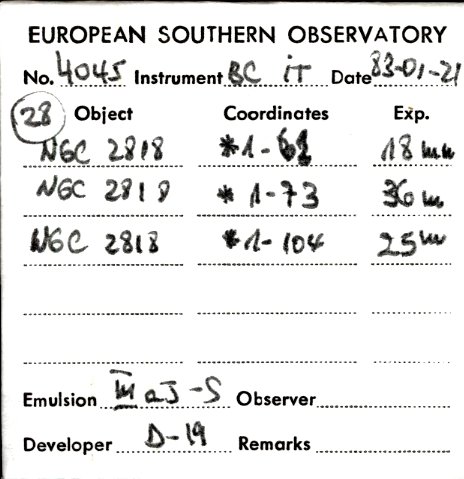 EUROPEAN SOUTHERN OBSERVATORY
No. 4045 Instrument BC iT Date 83-01-21
28 Object Coordinates Exp.
NGC 2818 *1-61 18 mn
NGC 2818 *1-73 36 m
NGC 2818 *1-104 25 m
Emulsion III aJ-S Observer
Developer D-19 Remarks